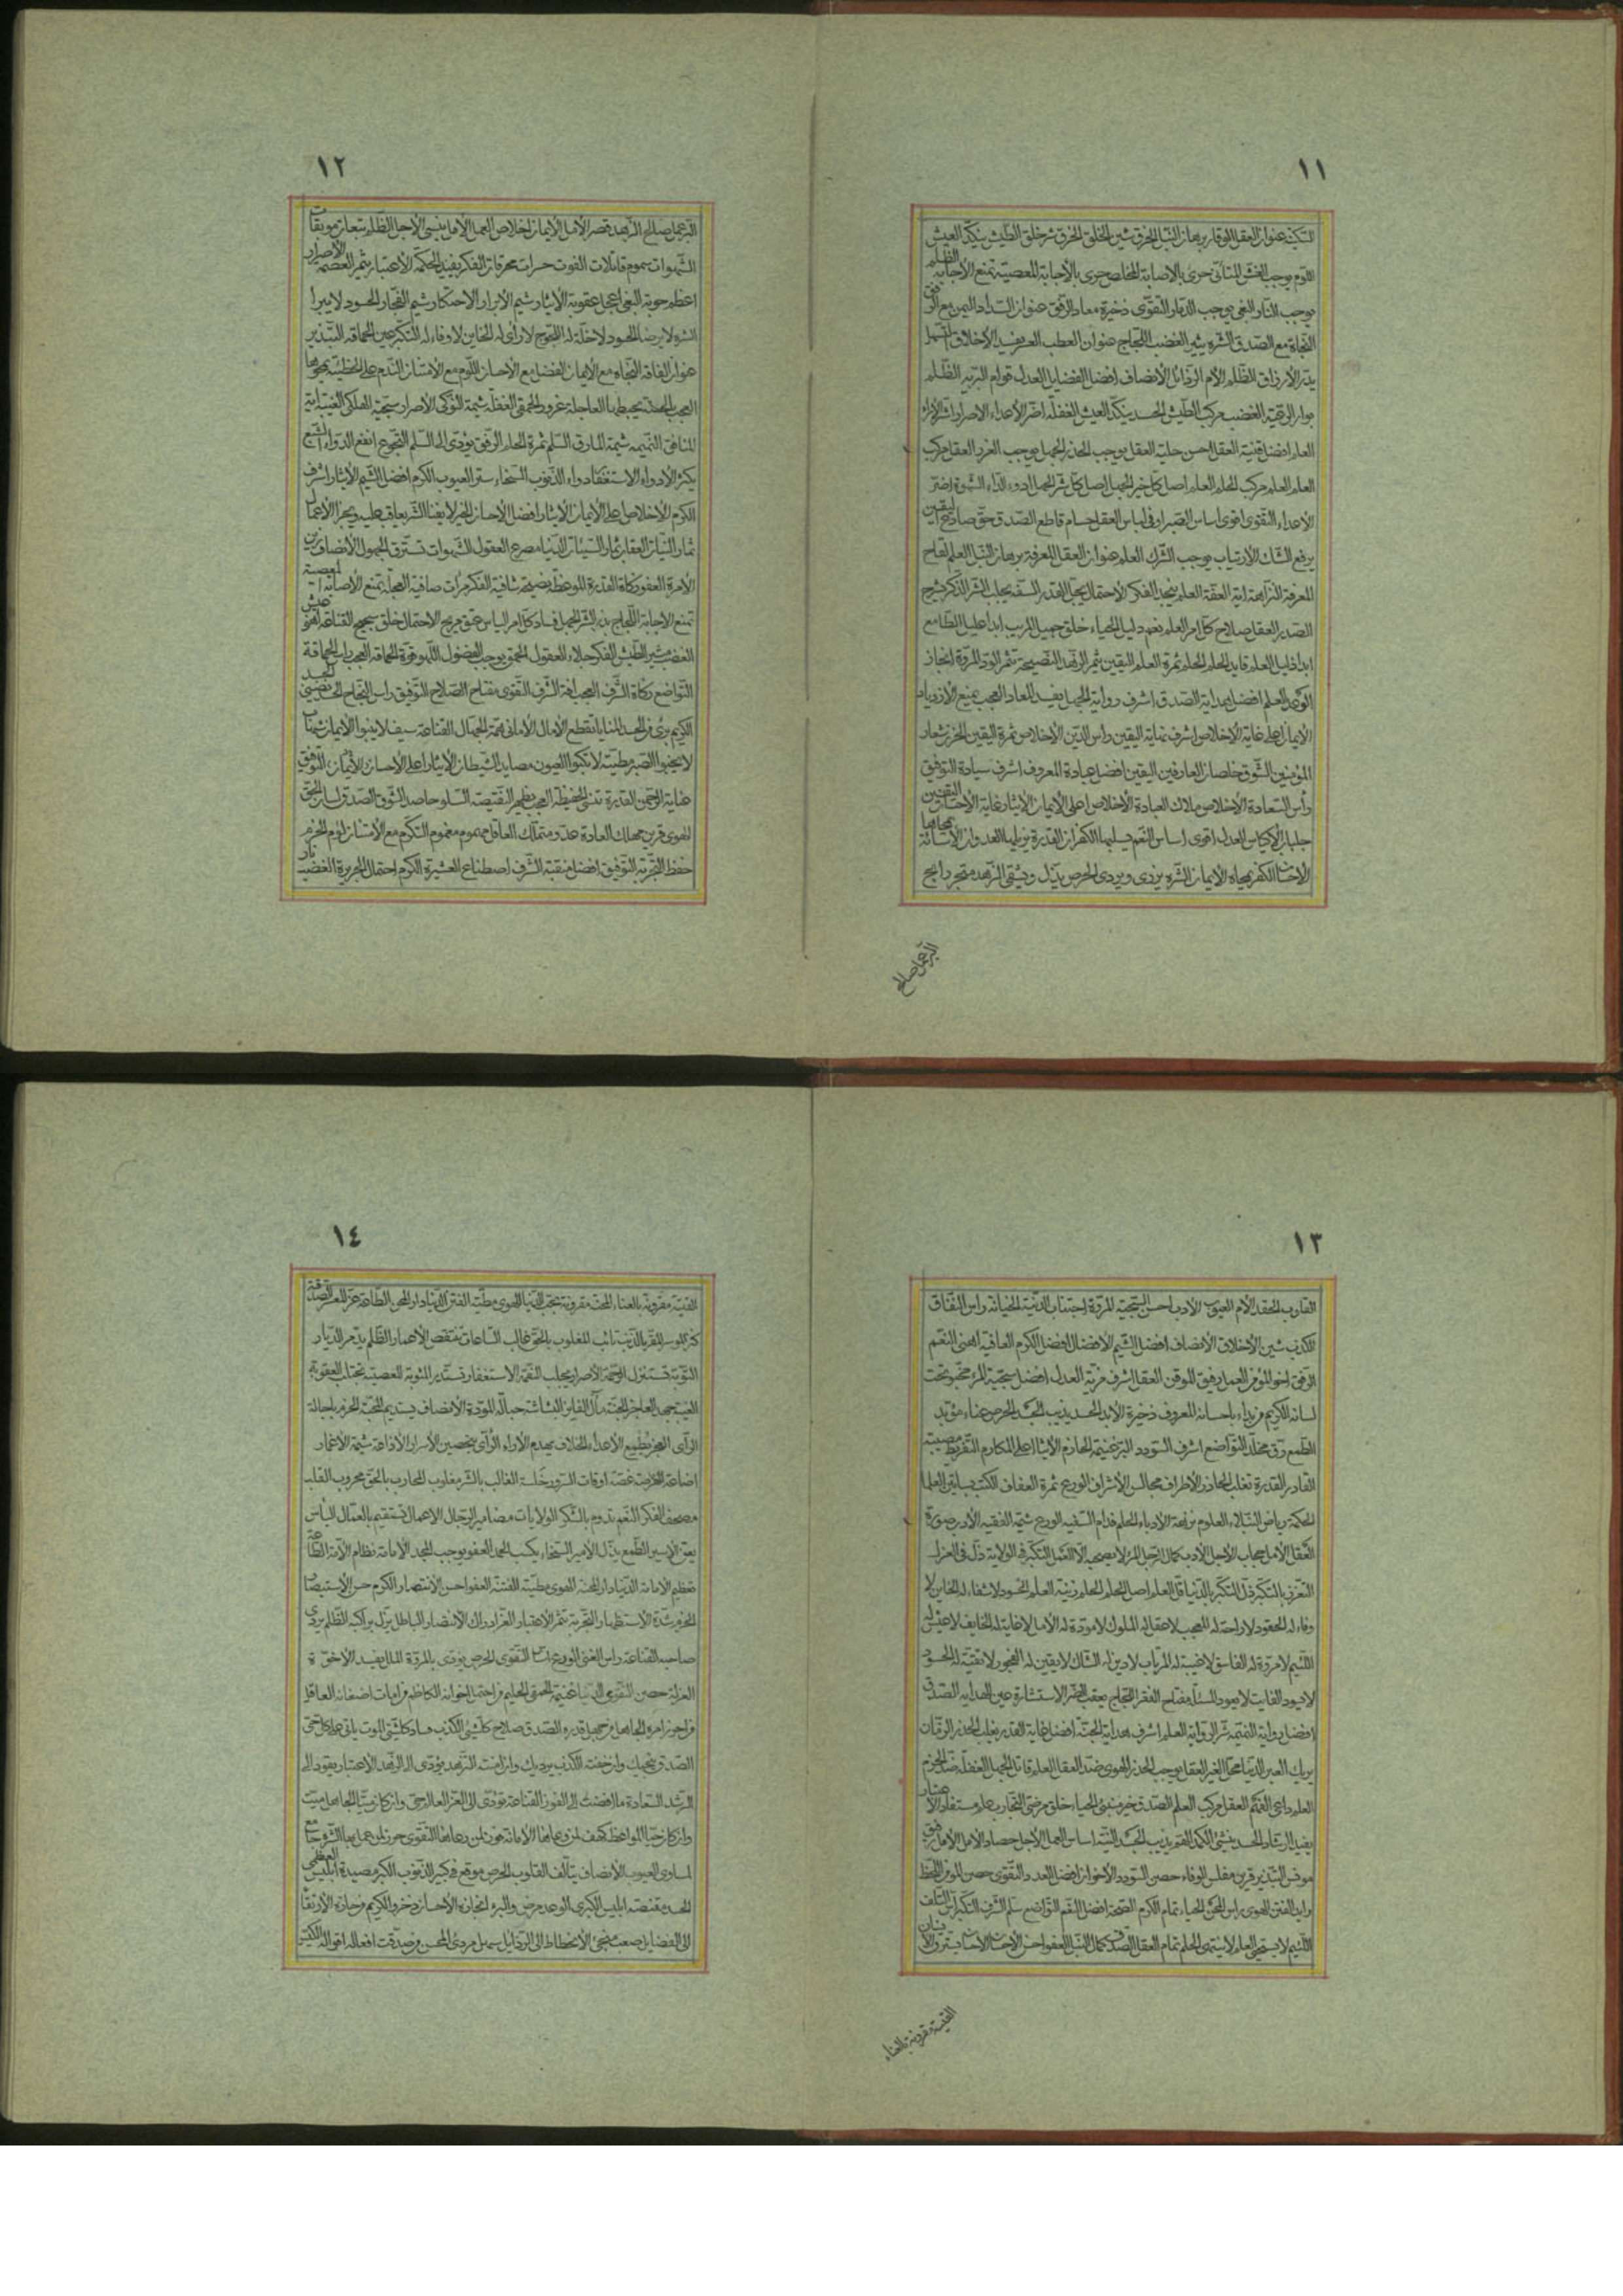 ١١
السكينة عنوان العقل الوقار برهان النبل الخرق شين الخلق الخرق شر خلق الطيش ينكد العيش
اللوم يوجب الغش المتأني حري بالاصابة المخلص حري بالأجابة المعصية تمنع الأجابة الظلم
يوجب النار البغي يوجب الدمار التقوى ذخيرة معاد الرفق عنوان السداد اليمن مع الرفق
النجاة مع الصدق الشره يثير الغضب اللجاج عنوان العطب العسر يفسد الأخلاق التسهل
يدر الأرزاق الظلم الأم الرذائل الأنصاف افضل الفضايل العدل قوام البرية الظلم
بوار الرعية الغضب مركب الطيش الحسد ينكد العيش الغفلة اضر الأعداء الاصرار شر الآراء
العلم افضل قنية العقل احسن حلية العقل يوجب الحذر الجهل يوجب الغرر العقل مركب
العلم العلم مركب الحلم العلم اصل كل خير الجهل اصل كل شر الجهل ادوء الداء الشهوة اضر
الأعداء التقوى اقوى اساس الصبر اوفى لباس العقل حسام قاطع الصدق حق صادع اليقين
يرفع الشك الأرتياب يوجب الشرك العلم عنوان العقل المعرفة برهان النبل العلم لقاح
المعرفة النزاهة اية العفة العلم ينجد الفكر الاحتمال يجل القدر السفه يجلب الشر الذكر يشرح
الصدر العقل صلاح كل امر العلم نعم دليل الحياء خلق جميل المريب ابدا عليل الطامع
ابدا ذليل العلم قايد الحلم الحلم ثمرة العلم اليقين يثمر الزهد النصيحة تثمر الود المروة انجاز
الوعد العلم افضل هداية الصدق اشرف رواية الجهل يفسد المعاد العجب يمنع الأزدياد
الأيمان اعلى غاية الأخلاص اشرف نهاية اليقين رأس الدين الأخلاص ثمرة اليقين الحزن شعار
المؤمنين الشوق خلصان العارفين اليقين افضل عبادة المعروف اشرف سيادة التوفيق
رأس السعادة الأخلاص ملاك العبادة الأخلاص اعلى الأيمان الأيثار غاية الأحسان اليقين
جلباب الأكياس العدل اقوى اساس النعم يسلبها الكفران القدرة يزيلها العدوان الأساءة يمحاها
الأحسان الكفر يمحاه الأيمان الشره يزري ويردي الحرص يذل ويشقي الزهد متجر رابح
البر عمل صالح
١٢
البر عمل صالح الزهد قصر الأمل الأيمان اخلاص العمل الأمل ينسي الأجل الظلم تبعات موبقات
الشهوات سموم قاتلات الفوت حسرات محرقات الفكر يفيد الحكمة الأعتبار يثمر العصمة الأصرار
اعظم حوبة البغي اعجل عقوبة الأيثار شيم الأبرار الأحتكار شيم الفجار الحسود لا يبرا
الشره لا يرضى الحسود لا خلة له اللجوج لا رأى له الخاين لا وفاء له التكبر عين الحماقة التبذير
عنوان الفاقة النجاة مع الأيمان الفضل مع الأحسان اللوم مع الأمتنان الندم على الخطيئة يمحوها
المنافق النميمة شيمة المارق السلم ثمرة الحلم الرفق يؤدي الى السلم التجوع انفع الدواء الشبع
يكثر الأدواء الاستغفار دواء الذنوب السخاء ستر العيوب الكرم افضل الشيم الأيثار اشرف
الكرم الأخلاص اعلى الأيمان الأيثار افضل الأحسان الخير لا يفنى الشر يعاقب عليه ويجزا الأعمال
ثمار النيات العقاب ثمار السيئات الدنيا مصرع العقول الشهوات تسترق الجهول الأنصاف زين
الأمرة العفو زكاة القدرة الموعظة نصيحة شافية الفكر مرآت صافية العجلة تمنع الأصابة المعصية
تمنع الأجابة اللجاج بذر الشر الجهل فساد كل امر الياس عتق مريح الاحتمال خلق سجيح القناعة اهنؤ عيش
الغضب مثير الطيش الفكر جلاء العقول الحمق يوجب الفضول اللهو قوة الحماقة العجب راس الحماقة
التواضع زكاة الشرف العجب افة الشرف التقوى مفتاح الصلاح التوفيق راس النجاح
الكريم برئ من الحسد المنايا تقطع الآمال الأماني همة الجهال القناعة سيف لا ينبوا
الصبر مطية لا تكبوا الصون مصايد الشيطان الأيثار اعلى الأحسان التوفيق
عناية الرحمن القدرة تنسي الحفيظة العجب يظهر النقيصة السلو حاصد الشوق الصدق لسان الحق
الهوى قرين مهلك العادة عدو متملك العاقل مهموم مغموم التكرم مع الأمتنان لوم الحزم
حفظ التجربة التوفيق افضل منقبة الشرف اصطناع العشيرة الكرم احتمال الجريرة الغضب نار
١٣
القلوب الحقد الأم العيوب الأدب احسن السجية المروة اجتناب الدنية الخيانة راس النفاق
الكذب شين الأخلاق الأنصاف افضل الشيم الأفضال افضل الكرم العافية اهنى النعم
الرفق اخو المؤمن العمل رفيق الموقن العقل اشرف مزية العدل افضل سجية المرء مخبو تحت
لسانه الكريم من بداء باحسانه المعروف ذخيرة الأبد الحسد يذيب الجسد الحرص عناء مؤبد
الطمع رق مخلد التواضع اشرف السودد البر غنيمة الحازم الأيثار اعلى المكارم التفريط مصيبة
القادر القدرة تغلب الحذار الأطراف مجالس الأشراف الورع ثمرة العفاف الكتب بساتين العلما
الحكمة رياض النبلاء العلوم نزهة الأدباء الحلم فدام السفيه الورع شيمة الفقيه الأدب صورة
العقل الأمل حجاب الأجل الأدب كمال الرجل المرء لا يصحبه الا العمل التكبر في الولاية ذل في العزل
التعزز بالتكبر ذل التكبر بالدنيا قل العلم اصل الحلم الحلم زينة العلم الحسود لا شفاء له الخاين لا
وفاء له الحقود لا راحة له المعجب لا عقل له الملوك لا مودة له الأمل لا غاية له الخايف لا عيش له
اللئيم لا مروة له الفاسق لا غيبة له المرتاب لا دين له الشاك لا يقين له الفجور لا تقية له الحسود
لا يسود الفايت لا يعود المسألة مفتاح الفقر اللجاج يعقب الضر الاستشارة عين الهداية الصدق
افضل رواية النميمة شر الرواية العلم اشرف هداية الجنة افضل غاية القدر يغلب الحذر الزمان
يريك العبر الدنيا محل الغير العقل يوجب الحذر الهوى ضد العقل العلم قاتل الجهل الغفلة ضد الحزم
العلم داعي الفهم العقل مركب العلم الصدق خير منبئ الحياء خلق مرضي التجارب علم مستفاد الأعتبار
يفيد الرشاد الحسد ينشئ الكمد الهم يذيب الجسد النية اساس العمل الأجل حصاد الأمل
التبذير قرين مفلس الوفاء حصن السودد الأخوان افضل العدد التقوى حصن المؤمن اللحظ
رايد الفتن الهوى راس المحن الحياء تمام الكرم الصحة افضل النعم التواضع سلم الشرف التكبر اس التلف
اللئيم لا يستحيي العلم لا ينتهي الحلم تمام العقل الصدق كمال النبل العفو احسن الأحسان الأحسان يسترق الأنسان
القنية مقرونة بالعناء
١٤
القنية مقرونة بالعناء المحن مقرونة بحب الدنيا الهوى مطية الفتن الدنيا دار المحن الطاعة عز المعسر الصدقة
كنز الموسر المقر بالذنب تائب المغلوب بالحق غالب الساعات تنقص الأعمار الظلم يدمر الديار
التوبة تستنزل الرحمة الأصرار يجلب النقمة الاستغفار تستدير المثوبة المعصية تجتلب العقوبة
الغيبة جهد العاجز الجنة مآل الفايز البشاشة حبالة المودة الأنصاف يستديم المحبة الحزم باجالة
الرأى العجز يطمع الأعداء الخلاف يهدم الآراء الرأى بتحصين الأسرار الأذاعة شيمة الأغمار
اضاعة الفرصة غصة اوقات السرور خلسة الغالب بالشر مغلوب المحارب بالحق محروب القلب
مصحف الفكر النعم تدوم بالشكر الولايات مضامير الرجال الاعمال تستقيم بالعمال الياس
يعتق الأسير الطمع يذل الأمير السخاء يكسب الحمد العفو يوجب المجد الأمامة نظام الأمة الطاعة
تعظيم الأمامة الدنيا دار المحنة الهوى مطية الفتنة العفو احسن الأنتصار الكرم حسن الأستبصار
الحزم شدة الأستظهار التجربة تثمر الأعتبار الباطل يزل براكبه الظلم يردي
صاحبه القناعة راس الغنى الورع اساس التقوى الحرص يزري بالمروة الملل يفسد الأخوة
العزلة حصن التقوى الدنيا غنيمة الحمقى الحليم من احتمل اخوانه الكاظم من امات اضغانه العاقل
من احرز امره الجاهل من جهل قدره الصدق صلاح كل شئ الكذب فساد كل شئ الموت ياتي على كل حي
الصدق ينجيك وان خفته الكذب يرديك وان امنته التزهد يؤدي الى الزهد الأعتبار يقود الى
الرشد السعادة ما افضت الى الفوز القناعة تؤدي الى العز العالم حي وان كان ميتا الجاهل ميت
وان كان حيا المواعظ كهف لمن وعاها الأمانة فوز لمن رعاها التقوى حرز لمن عمل بها الشره جامع
لمساوي العيوب الأنصاف يتألف القلوب الحرص موقع في كبير الذنوب الكبر مصيدة ابليس العظمى
الحسد مقنصة ابليس الكبرى الوعد مرض والبرء انجازه الأحسان ذخر والكريم من حازه الأرتقاء
الى الفضايل صعب منجئ الأنحطاط الى الرذايل سهل مردي المحسن من صدقت افعاله اقواله الكيس